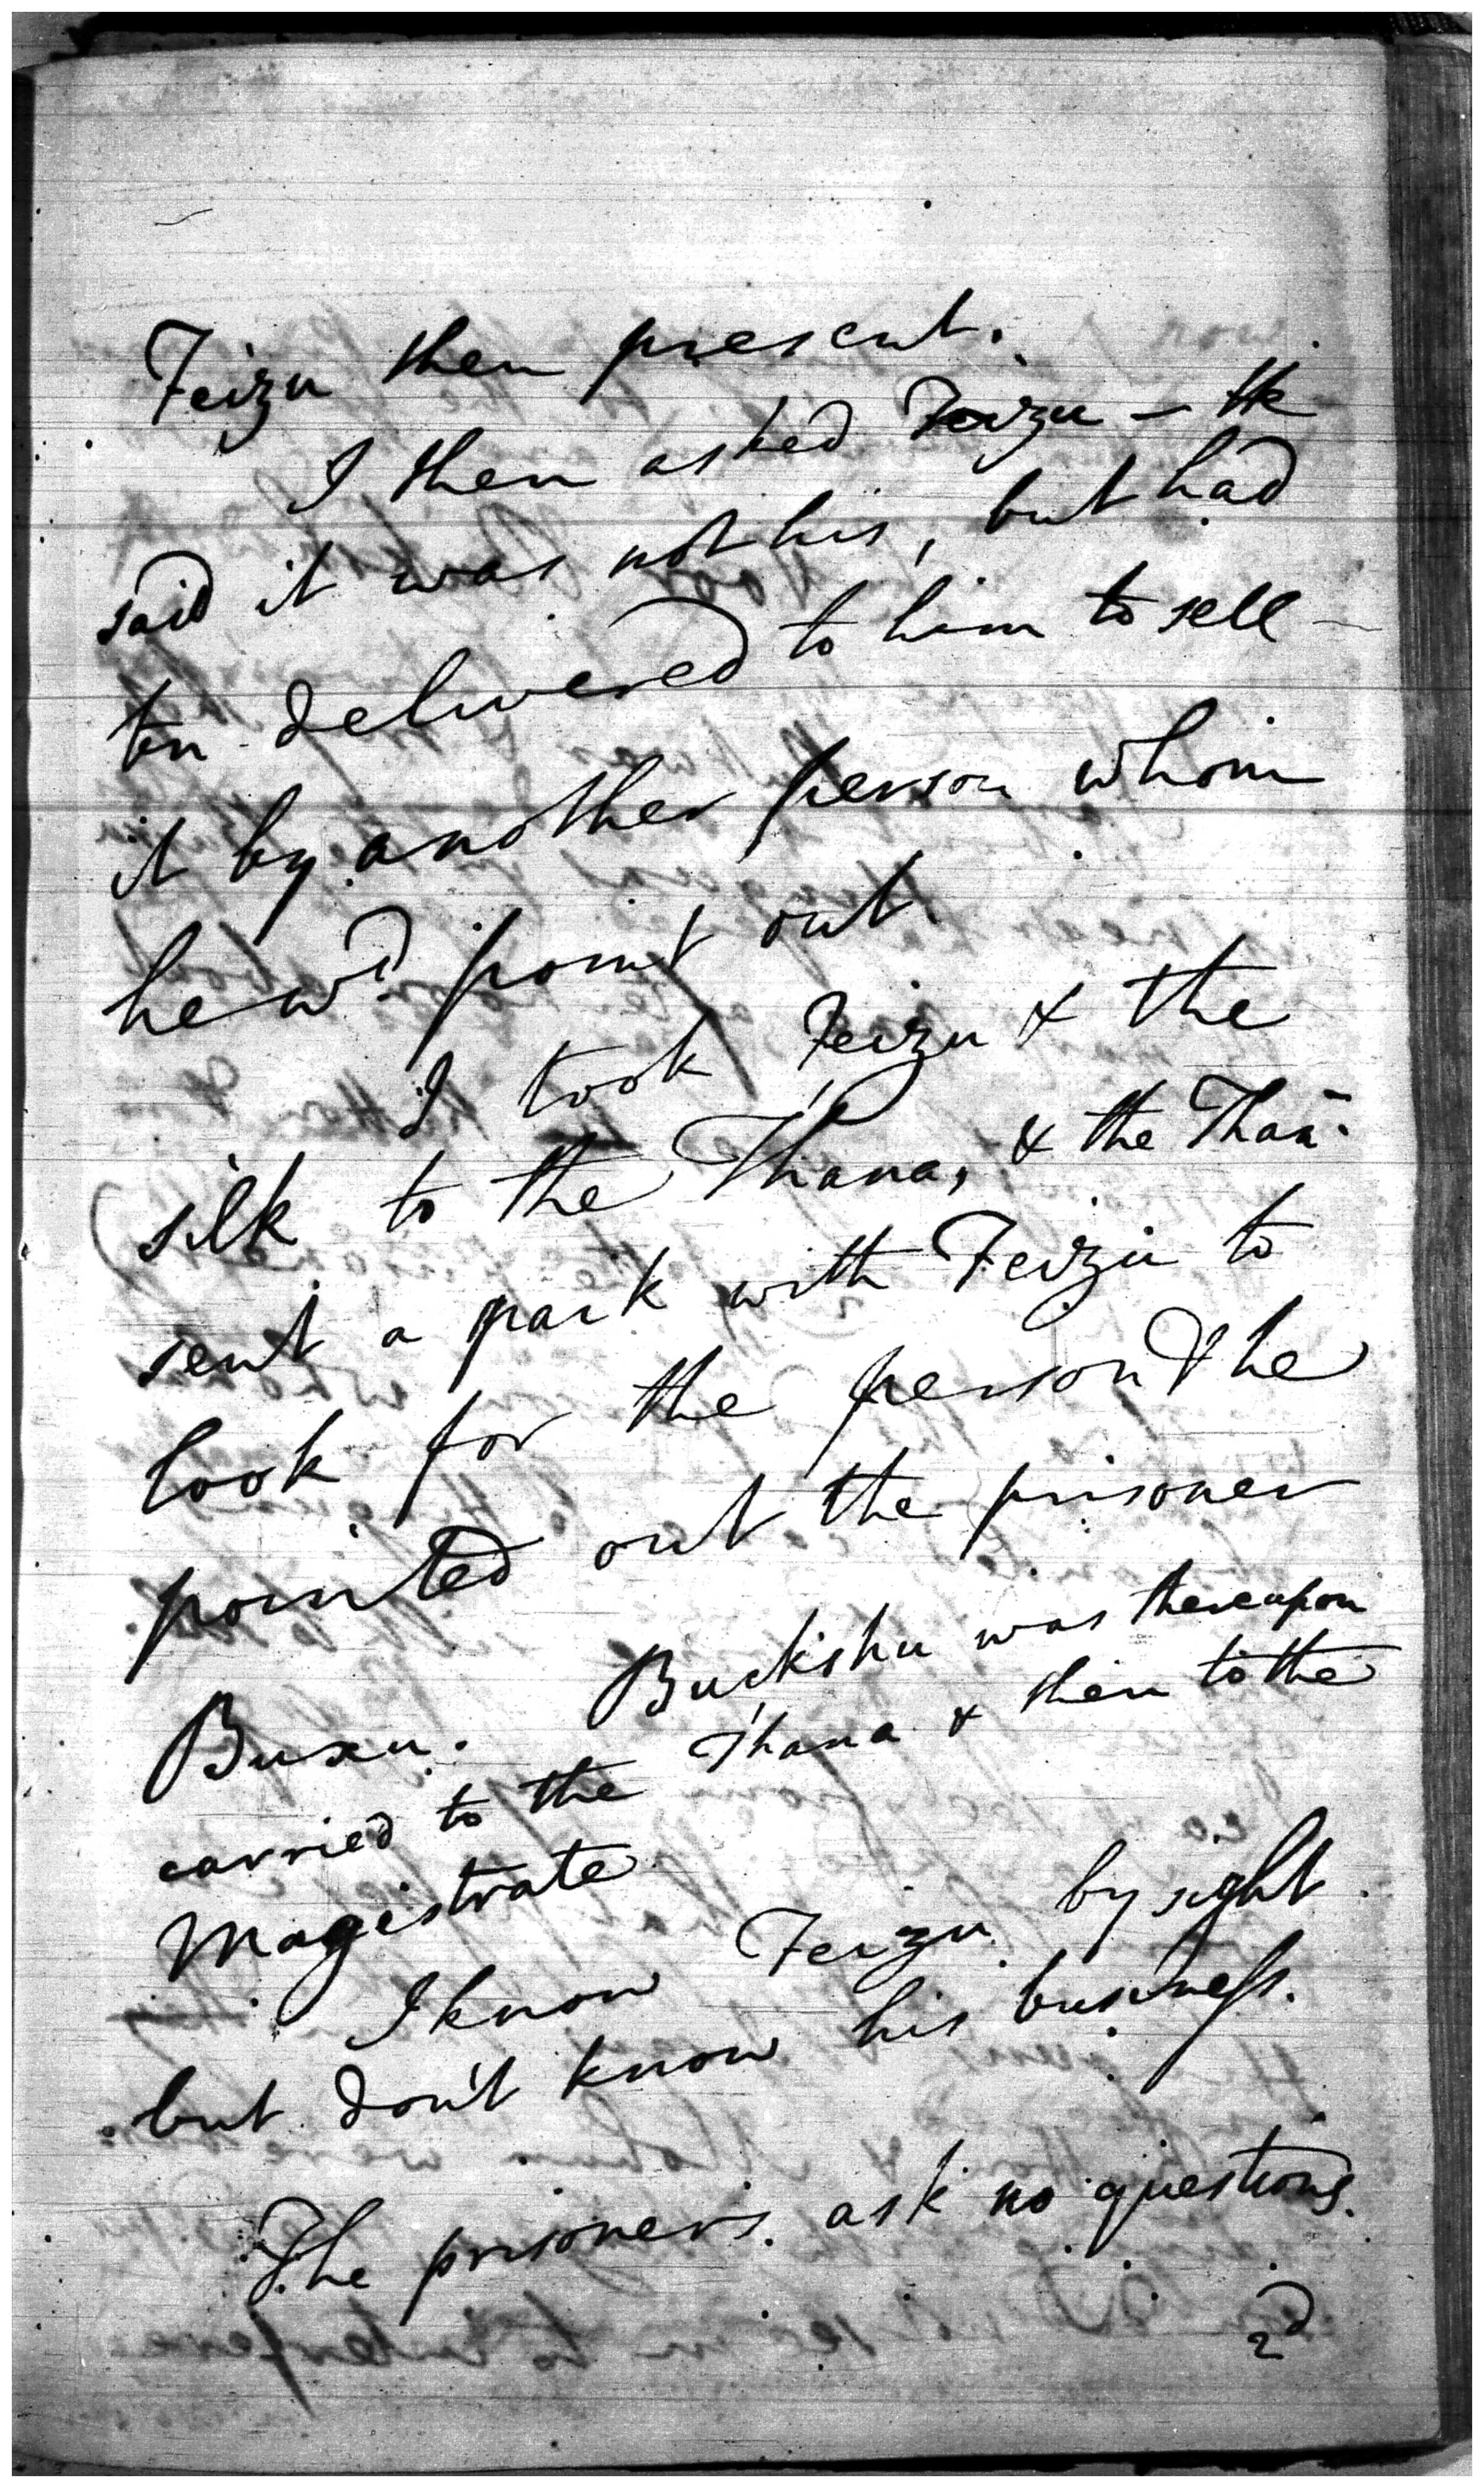 Feizu then present.
I then asked Feizu — He
said it was not his, but had
bn delivered to him to sell
it by another person whom
he wd point out.
I took Feizu & the
silk to the Thana, & the Thaa-
sent a paik with Feizu to
look for the person & he
pointed out the prisoner
Buxu. Buckshu was thereupon
carried to the Thana & then to the
Magistrate
I know Feizu by sight
but don't know his business.
The prisoners ask no questions.
2d